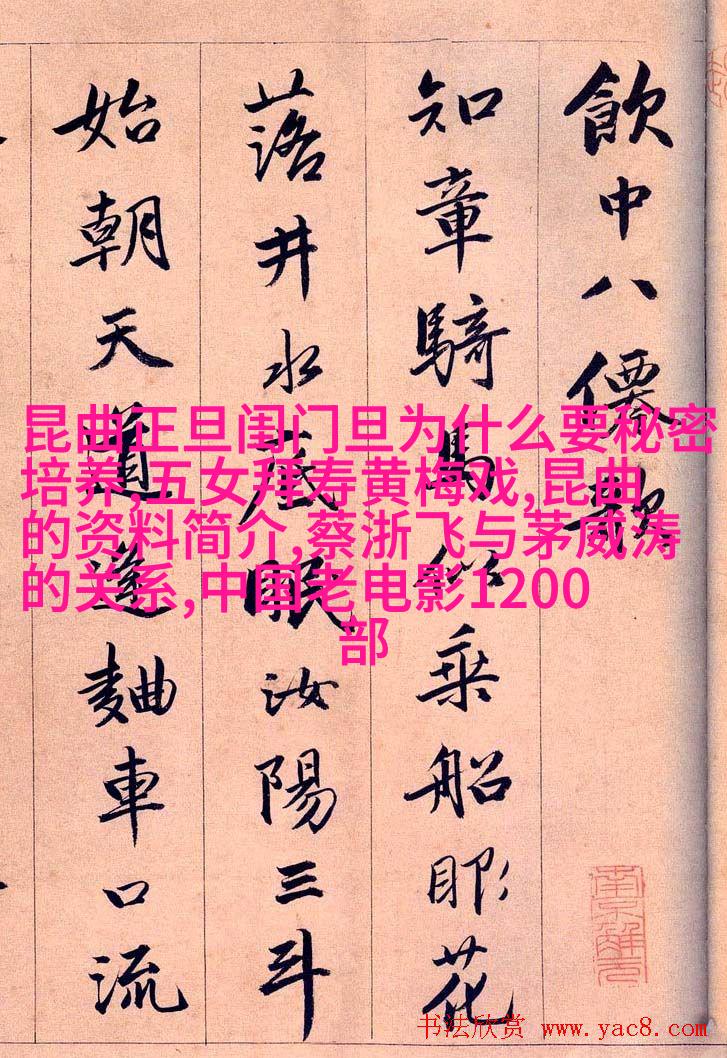 飲中八僊歌
知章騎馬似乘船眼花
落井水底眠汝陽三斗
始朝天道逢麯車口流
昆曲正旦闺门旦为什么要秘密
培养,五女拜寿黄梅戏,昆曲
的资料简介,蔡浙飞与茅威涛
的关系,中国老电影1200
部
南京解元
书法欣赏 www.yac8.com